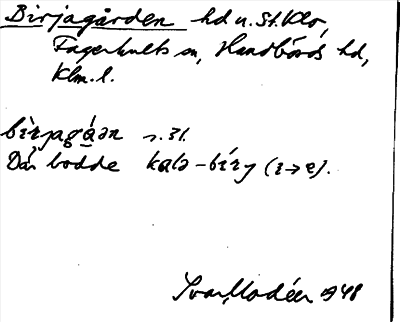 Birjagården hd u. St. Klo,
Fagerhults sn, Handbörds hd,
Klm. l.
bìrjagáən s. 31.
Där bodde kalə-bírj (i→e).
Ivar Modéer 1948